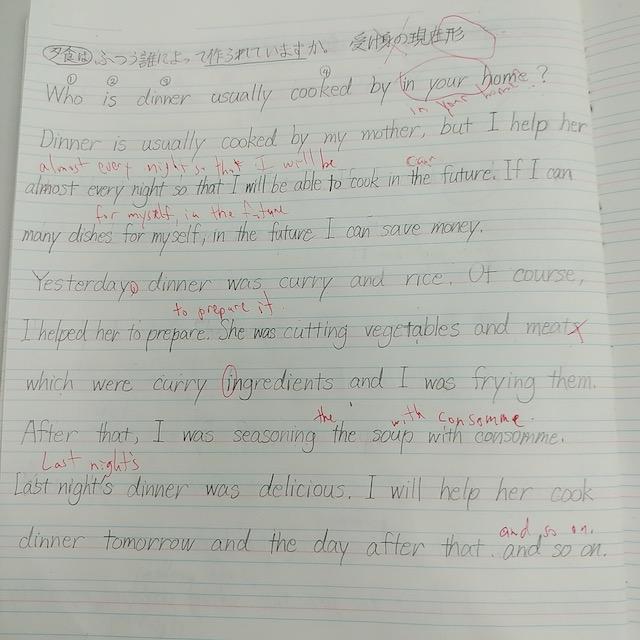 夕食は ふつう誰によって作られていますか。 受け身の現在形
① ② ③ ④
Who is dinner usually cooked by in your home?
in your home
Dinner is usually cooked by my mother, but I help her
almost every night so that I will be can
almost every night so that I will be able to cook in the future. If I can
for myself, in the future
many dishes for myself, in the future I can save money.
Yesterday, dinner was curry and rice. Of course,
to prepare it.
I helped her to prepare. She was cutting vegetables and meat
which were curry ingredients and I was frying them.
the with consomme.
After that, I was seasoning the soup with consomme.
Last night's
Last night's dinner was delicious. I will help her cook
and so on.
dinner tomorrow and the day after that. and so on.